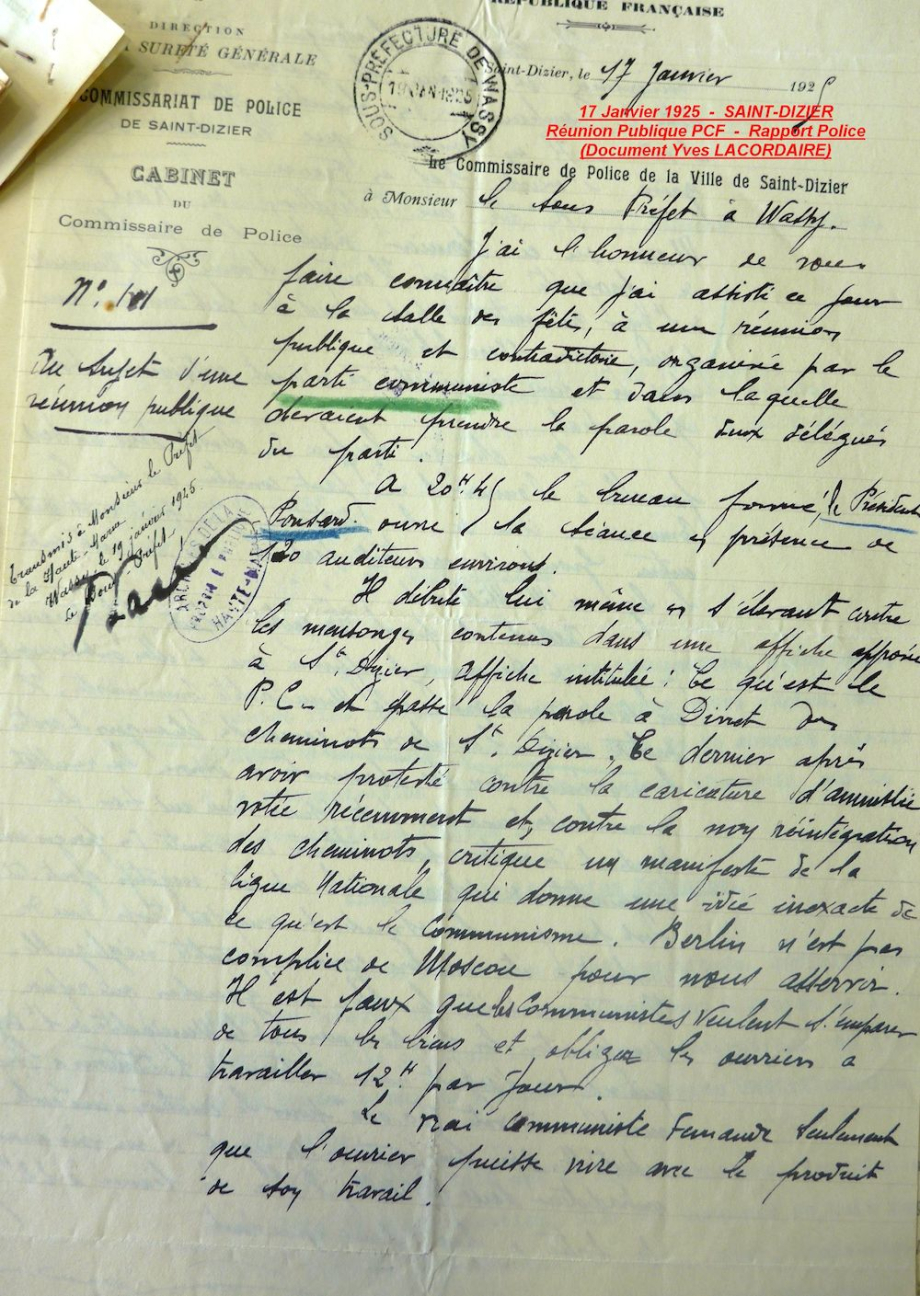 RÉPUBLIQUE FRANÇAISE
DIRECTION
SURETÉ GÉNÉRALE
COMMISSARIAT DE POLICE
DE SAINT-DIZIER
CABINET
DU
Commissaire de Police
SOUS-PRÉFECTURE DE WASSY
19 JANV 1925
Saint-Dizier, le 17 Janvier 1925
17 Janvier 1925 - SAINT-DIZIER
Réunion Publique PCF - Rapport Police
(Document Yves LACORDAIRE)
Le Commissaire de Police de la Ville de Saint-Dizier
à Monsieur le Sous Préfet à Wassy.
N°
Au sujet d'une
réunion publique
Transmis à Monsieur le Préfet
de la Haute-Marne
Wassy, le 19 janvier 1925
Le Sous-Préfet,
ARCHIVES DE LA
HAUTE-MARNE
J'ai l'honneur de vous
faire connaître que j'ai assisté ce jour
à la salle des fêtes, à une réunion
publique et contradictoire, organisée par le
parti communiste et dans laquelle
devaient prendre la parole deux délégués
du parti.
A 20H le bureau formé, le Président
Ponsard ouvre la séance en présence de
120 auditeurs environs.
Il débute lui même en s'élevant contre
les mensonges contenus dans une affiche apposée
à St Dizier, affiche intitulée : Ce qu'est le
P.C. et passe la parole à Divret des
cheminots de St Dizier. Ce dernier après
avoir protesté contre la caricature d'amnistie
votée récemment et, contre la non réintégration
des cheminots, critique un manifeste de la
ligue Nationale qui donne une idée inexacte de
ce qu'est le Communisme. Berlin n'est pas
complice de Moscou pour nous asservir.
Il est faux que les Communistes veulent s'emparer
de tous les biens et obliger les ouvriers a
travailler 12H par jour.
Le vrai communiste demande seulement
que l'ouvrier puisse vivre avec le produit
de son travail.